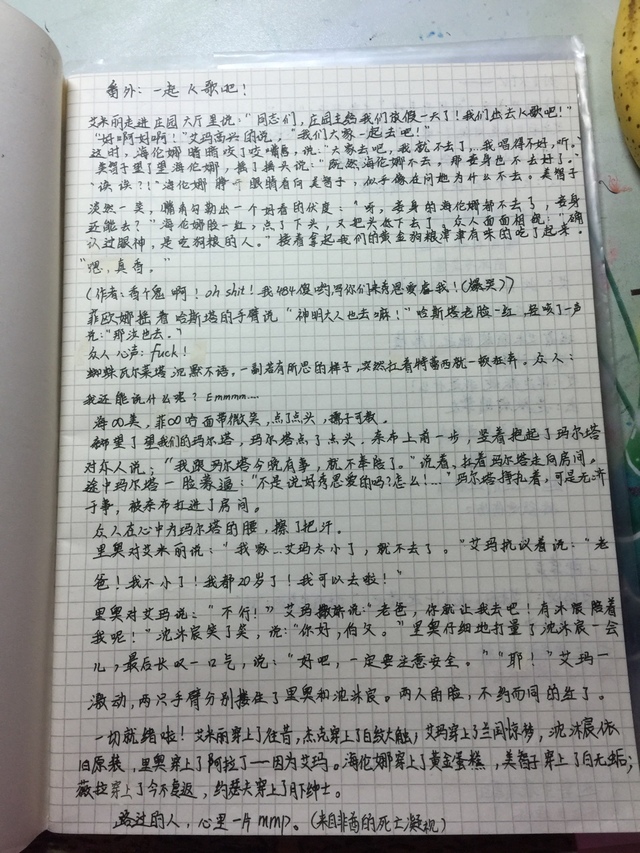 番外：一起K歌吧！
艾米丽走进庄园大厅里说："同志们，庄园主给我们放假一天了！我们出去K歌吧！"
"好啊好啊！"艾玛高兴的说，"我们大家一起去吧！"
这时，海伦娜暗暗咬了咬嘴唇，说："大家去吧，我就不去了，我唱得不好听。"
美智子望了望海伦娜，摇了摇头说："既然海伦娜不去，那妾身也不去好了。"
"诶诶？！"海伦娜睁开眼睛看向美智子，似乎像在问她为什么不去。美智子
淡然一笑，嘴角勾勒出一个好看的伏度："呀，妾身的海伦娜都不去了，妾身
还能去？"海伦娜脸一红，点了下头，又把头低下去了，众人面面相觑："确
认过眼神，是吃狗粮的人。"接着拿起我们的黄金狗粮津津有味的吃了起来。
"嗯，真香。"
(作者：香个鬼啊！oh shit！我484傻哟，写你们来秀恩爱虐我！(爆哭))
菲欧娜摇着哈斯塔的手臂说"神明大人也去嘛！"哈斯塔老脸一红，轻咳了一声
说："那汝也去。"
众人心声：fuck！
蜘蛛瓦尔莱塔沉默不语，一副若有所思的样子，突然扛着特蕾西就一顿狂奔。众人：
我还能说什么呢？Emmmm....
海∞美，菲∞哈面带微笑，点了点头，孺子可教。
望了望我们的玛尔塔，玛尔塔点了点头，奈布上前一步，竖着抱起了玛尔塔
对众人说："我跟玛尔塔今晚有事，就不奉陪了。"说着，扛着玛尔塔走向房间。
途中玛尔塔一脸蒙逼："不是说好秀恩爱的吗？怎么！..."玛尔塔挣扎着，可是无济
于事，被奈布扛进了房间。
众人在心中为玛尔塔的腰，擦了把汗。
里奥对艾米丽说："我家...艾玛太小了，就不去了。"艾玛抗议着说："老
爸！我不小了！我都20岁了！我可以去啦！"
里奥对艾玛说："不行！"艾玛撒娇说："老爸，你就让我去吧！有沐宸陪着
我呢！"沈沐宸笑了笑，说："你好，伯父。"里奥仔细地打量了沈沐宸一会
儿，最后长叹一口气，说："好吧，一定要注意安全。""耶！"艾玛一
激动，两只手臂分别搂住了里奥和沈沐宸。两人的脸，不约而同的红了。
一切就绪啦！艾米丽穿上了往昔，杰克穿上了白纹大触，艾玛穿上了兰闺惊梦，沈沐宸依
旧原装，里奥穿上了阿拉丁——因为艾玛。海伦娜穿上了黄金蛋糕，美智子穿上了白无垢；
薇拉穿上了今不复返，约瑟夫穿上了月下绅士。
路过的人，心里一片mmp。(来自非酋的死亡凝视)